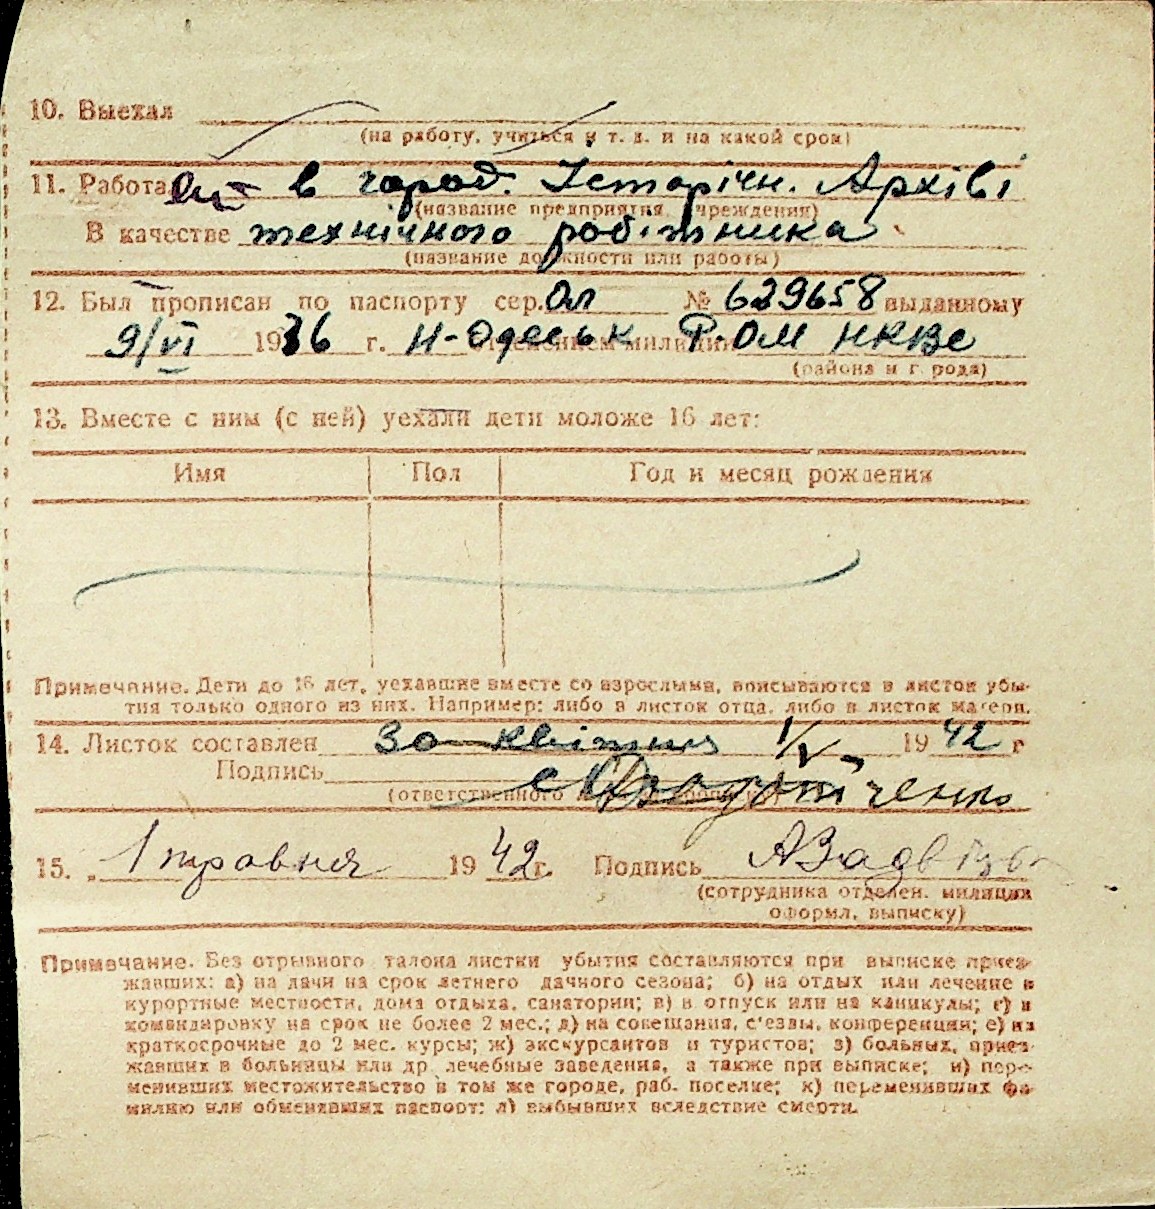 10. Выехал
(на работу, учиться и т. д. и на какой срок)
11. Работал в город. Історічн. Архіві
(название предприятия, учреждения)
В качестве технічного робітника
(название должности или работы)
12. Был прописан по паспорту сер. Ол № 629658 выданному
9/VI 1936 г. Н-Одеськ Р.ОМ НКВС
отделением милиции
(района и города)
13. Вместе с ним (с ней) уехали дети моложе 16 лет:
Имя Пол Год и месяц рождения
Примечание. Дети до 16 лет, уехавшие вместе со взрослыми, вписываются в листок убы-
тия только одного из них. Например: либо в листок отца, либо в листок матери.
14. Листок составлен 30 квітня 1/V 1942 г
Подпись
15. „ 1 травня 1942 г. Подпись
(сотрудника отделен. милиции
оформл. выписку)
Примечание. Без отрывного талона листки убытия составляются при выписке приез-
жавших: а) на дачи на срок летнего дачного сезона; б) на отдых или лечение в
курортные местности, дома отдыха, санатории; в) в отпуск или на каникулы; г) в
командировку на срок не более 2 мес.; д) на совещания, с'езды, конференции; е) на
краткосрочные до 2 мес. курсы; ж) экскурсантов и туристов; з) больных, приез-
жавших в больницы или др. лечебные заведения, а также при выписке; и) пере-
менивших местожительство в том же городе, раб. поселке; к) переменивших фа-
милию или обменявших паспорт; л) выбывших вследствие смерти.